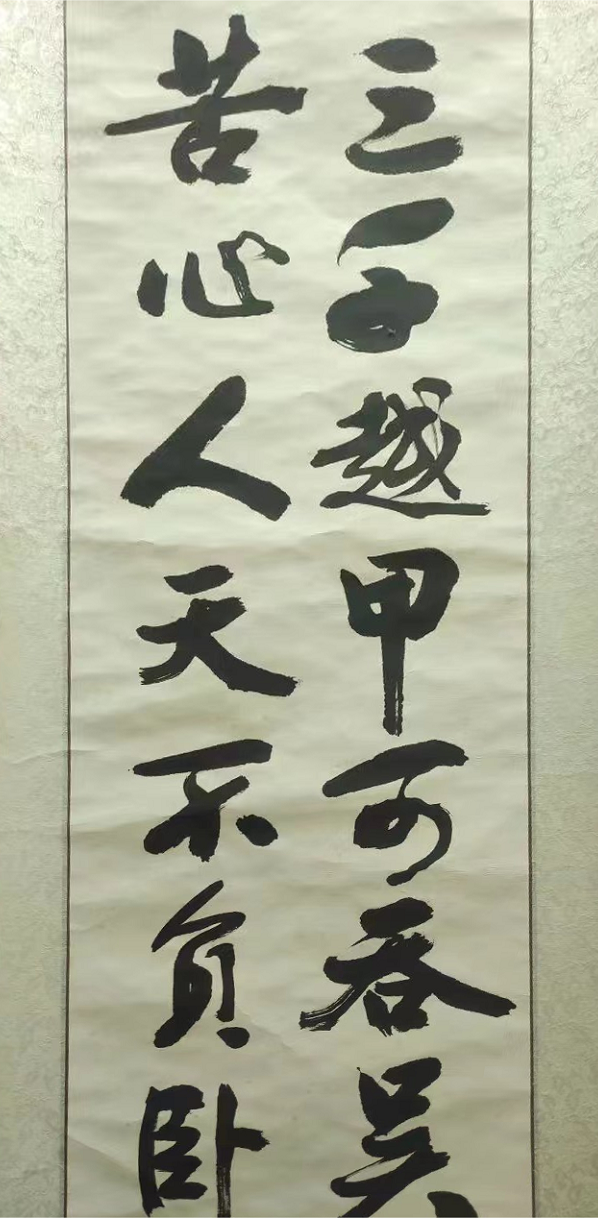 苦心人天不負卧
三千越甲可吞吳